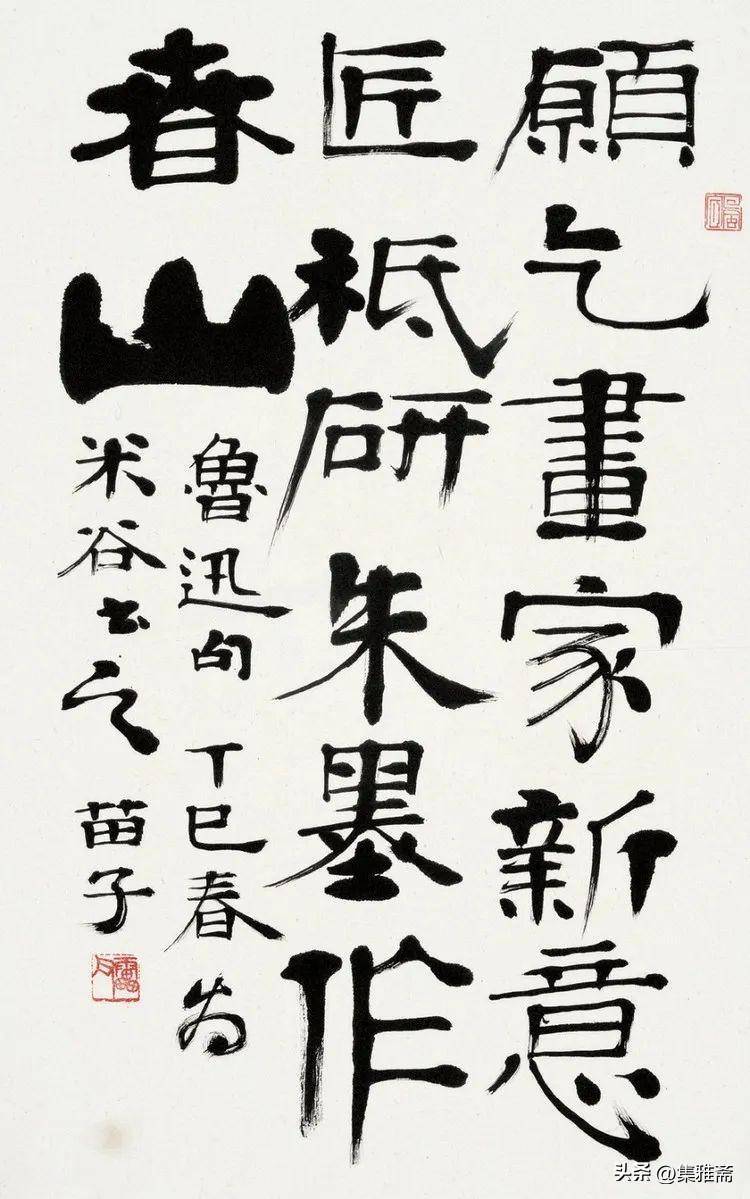 願乞畫家新意
匠祗研朱墨作
春山
魯迅句 丁巳春为
米谷书之 苗子
头条 @集雅斋